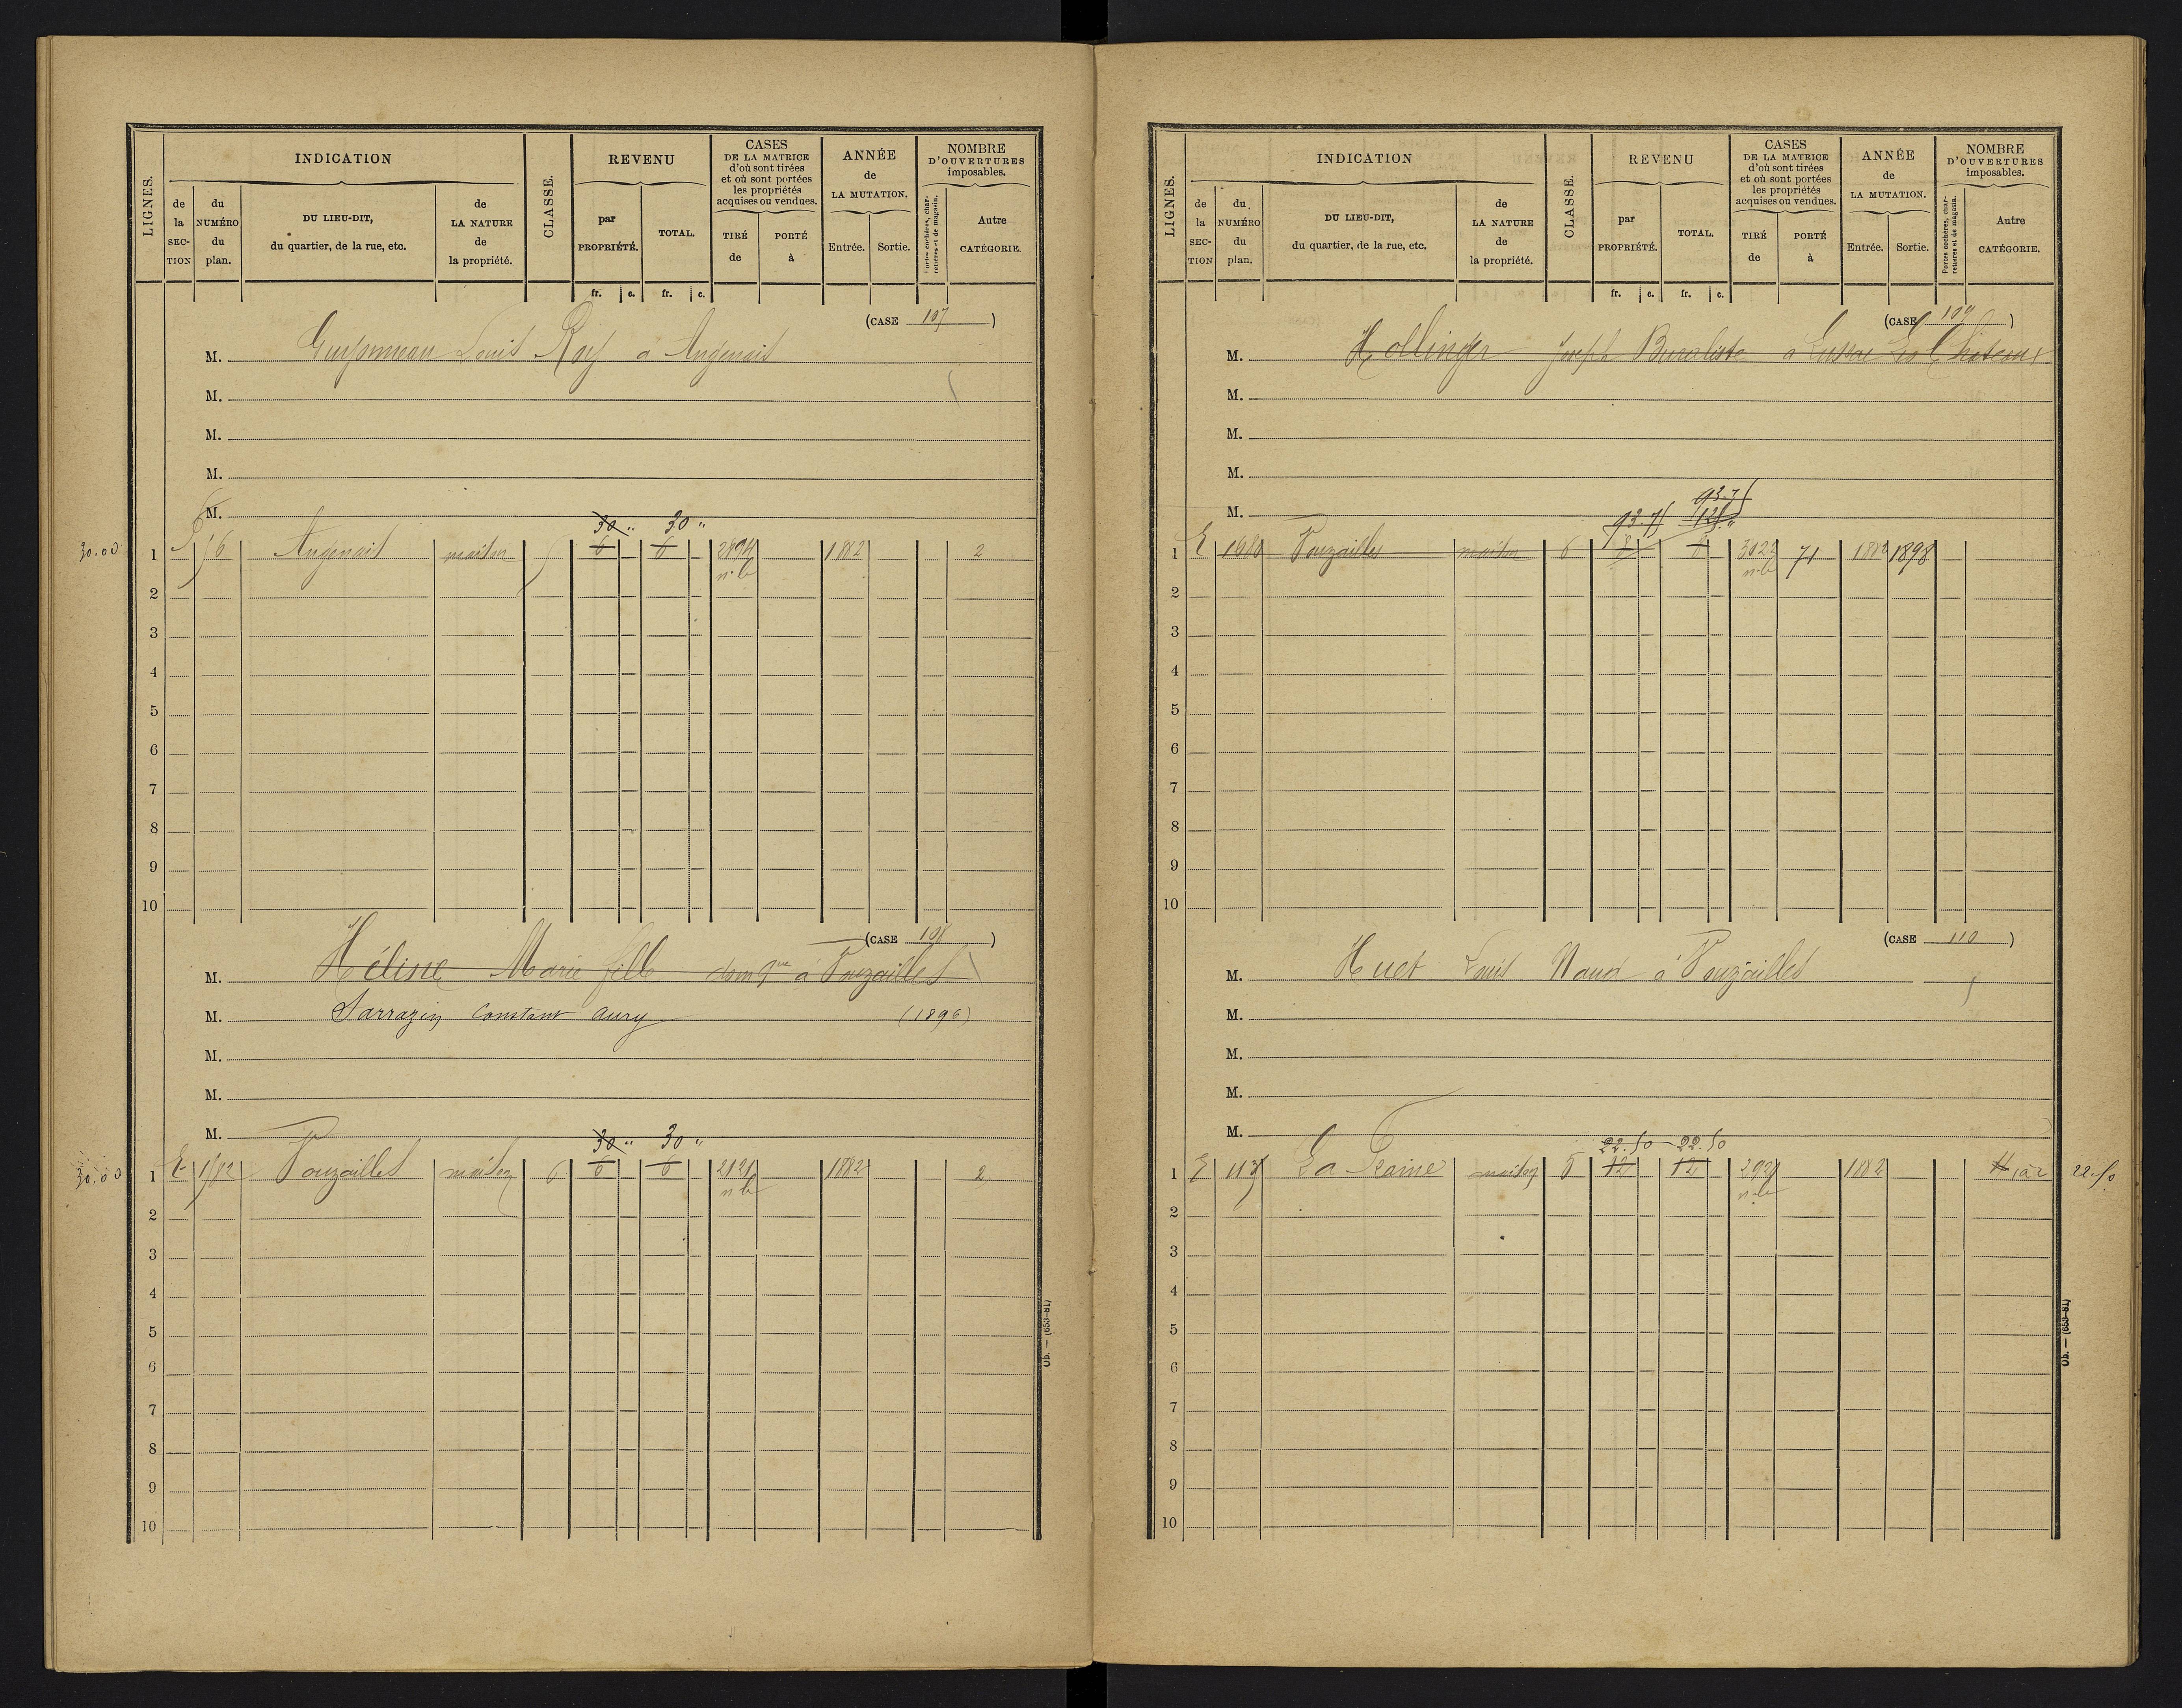 LIGNES.
INDICATION
de la SECTION
du NUMÉRO du plan.
DU LIEU-DIT, du quartier, de la rue, etc.
de LA NATURE de la propriété.
CLASSE.
REVENU
par PROPRIÉTÉ.
TOTAL.
fr. c. fr. c.
CASES DE LA MATRICE d'où sont tirées et où sont portées les propriétés acquises ou vendues.
TIRÉ de
PORTÉ à
ANNÉE de LA MUTATION.
Entrée. Sortie.
NOMBRE D'OUVERTURES imposables.
Portes cochères, charretières et de magasin.
Autre CATÉGORIE.
(CASE 107)
M. Louis Roy a Angenait
M.
M.
M.
M.
30 " 30 "
30.00 1 6 Angenait maison 6 6 1882 2
n.b
2
3
4
5
6
7
8
9
10
(CASE 108)
M. Hélisse Marie fille dom que a Pouzailles
M. Sarrazin Constant Aury (1896)
M.
M.
M.
30 " 30 "
30.00 1 E Pouzailles maison 6 6 6 2121 1882 2
n.b
2
3
4
5
6
7
8
9
10
Ob. — (653-81)
LIGNES.
INDICATION
de la SECTION
du NUMÉRO du plan.
DU LIEU-DIT, du quartier, de la rue, etc.
de LA NATURE de la propriété.
CLASSE.
REVENU
par PROPRIÉTÉ.
TOTAL.
fr. c. fr. c.
CASES DE LA MATRICE d'où sont tirées et où sont portées les propriétés acquises ou vendues.
TIRÉ de
PORTÉ à
ANNÉE de LA MUTATION.
Entrée. Sortie.
NOMBRE D'OUVERTURES imposables.
Portes cochères, charretières et de magasin.
Autre CATÉGORIE.
(CASE 109)
M. Hollinger Joseph Buraliste a Lussac Les Chateaux
M.
M.
M.
93.75
M.
93.75
1 E Pouzailles maison 6 8 8 3022 71 1882 1898
n.b
2
3
4
5
6
7
8
9
10
(CASE 110)
M. Huet Louis Naud à Pouzailles
M.
M.
M.
M.
22.50 22.50
1 E 113 maison 12 12 1882 1 à 2 22.50
n.b
2
3
4
5
6
7
8
9
10
Ob. — (653-81)